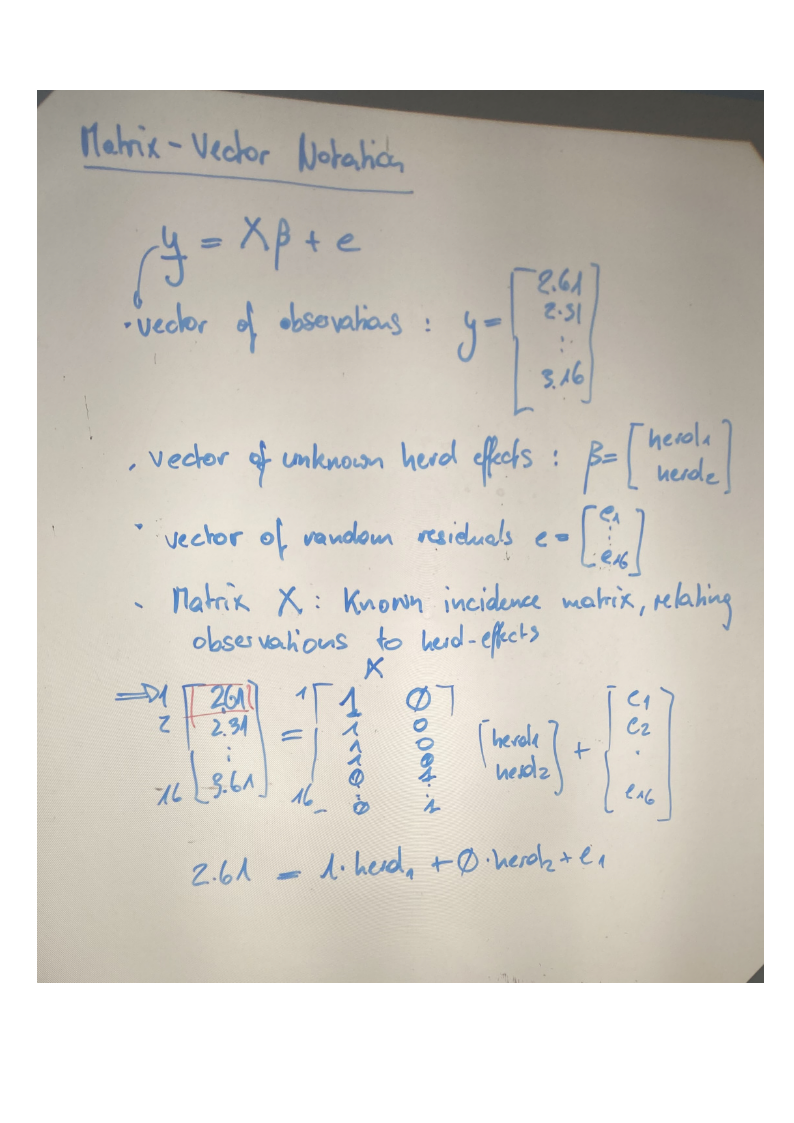 Matrix-Vector Notation
y = Xβ + e
· vector of observations : y = [2.61
2.31
⋮
3.16]
· vector of unknown herd effects : β = [herd1
herd2]
· vector of random residuals e = [e1
⋮
e16]
· Matrix X : Known incidence matrix, relating
observations to herd-effects
X
⇒ 1 [2.61 = 1 [1 0] [e1
2 2.31 1 0 [herd1 + e2
⋮ 1 0 herd2] ·
1 0
0 1
16 3.61] 16 0 1 e16]
2.61 = 1·herd1 + 0·herd2 + e1